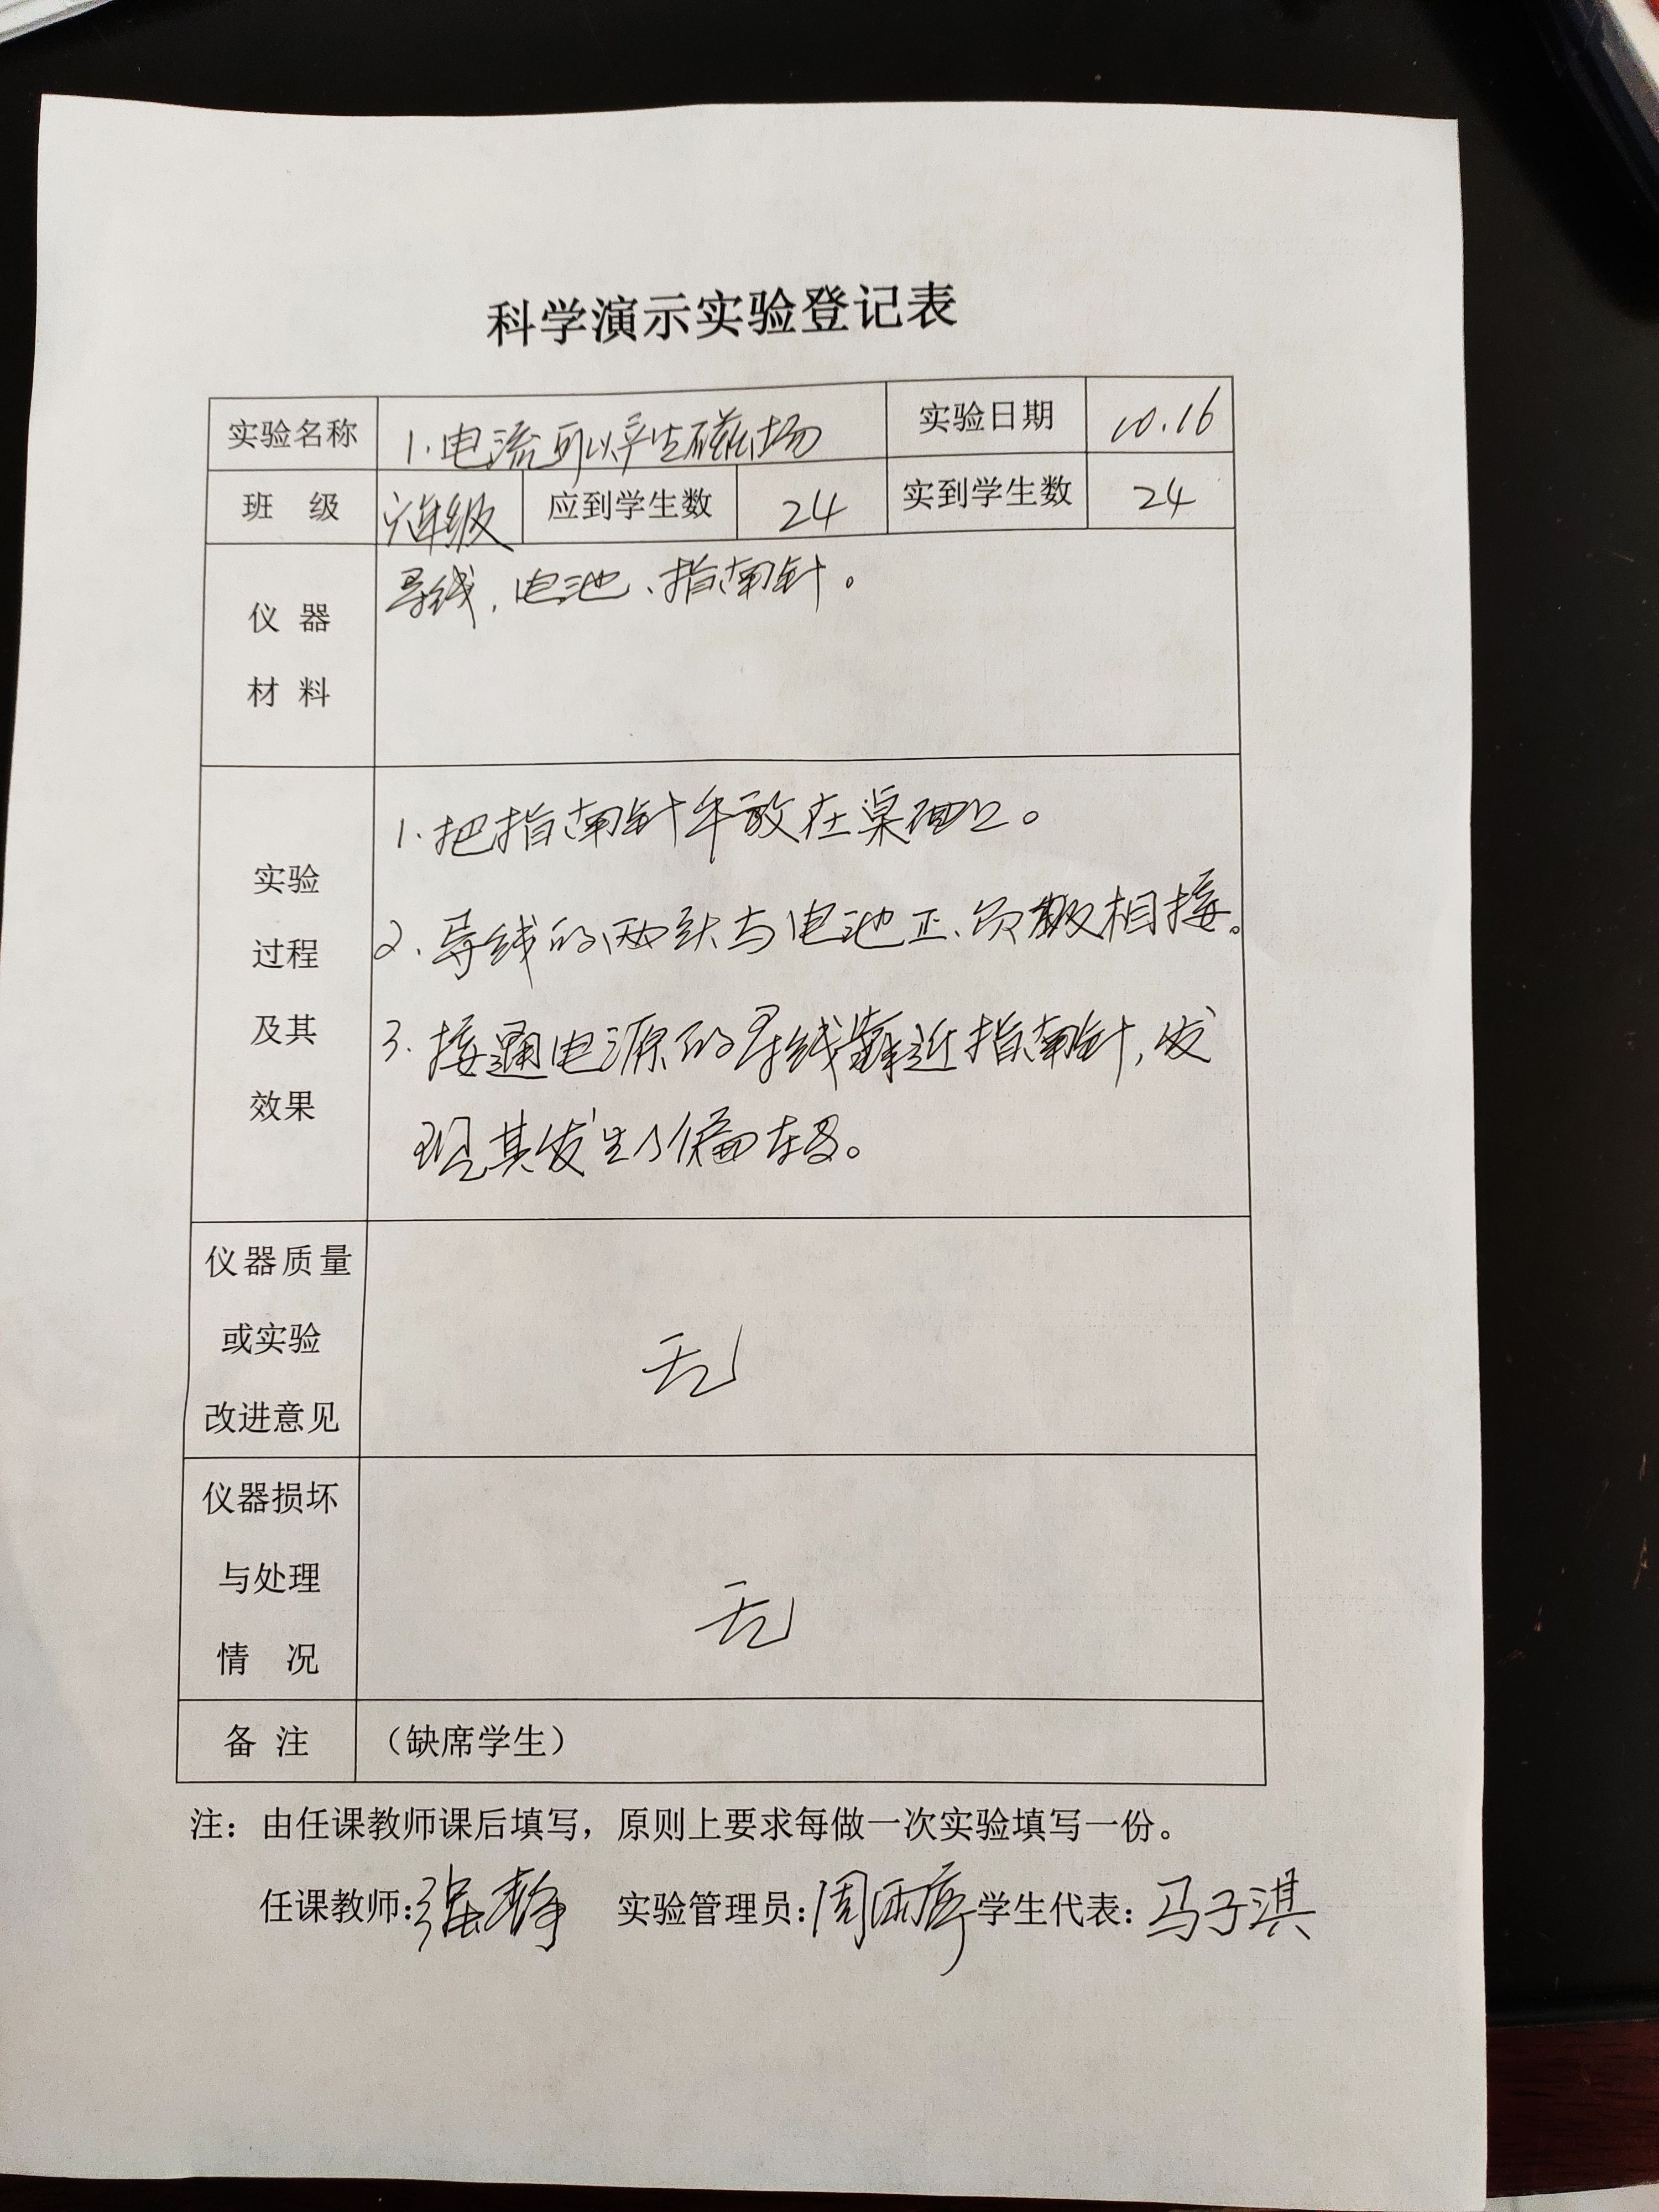 科学演示实验登记表
实验名称 1.电流可以产生磁场 实验日期 10.16
班 级 六年级 应到学生数 24 实到学生数 24
仪 器
材 料
导线、电池、指南针。
实验
过程
及其
效果
1.把指南针平放在桌面上。
2.导线的两头与电池正、负极相接。
3.接通电源的导线靠近指南针,发
现其发生了偏转。
仪器质量
或实验
改进意见
无
仪器损坏
与处理
情 况
无
备 注 （缺席学生）
注：由任课教师课后填写，原则上要求每做一次实验填写一份。
任课教师:强静 实验管理员:周雨 学生代表:马子淇